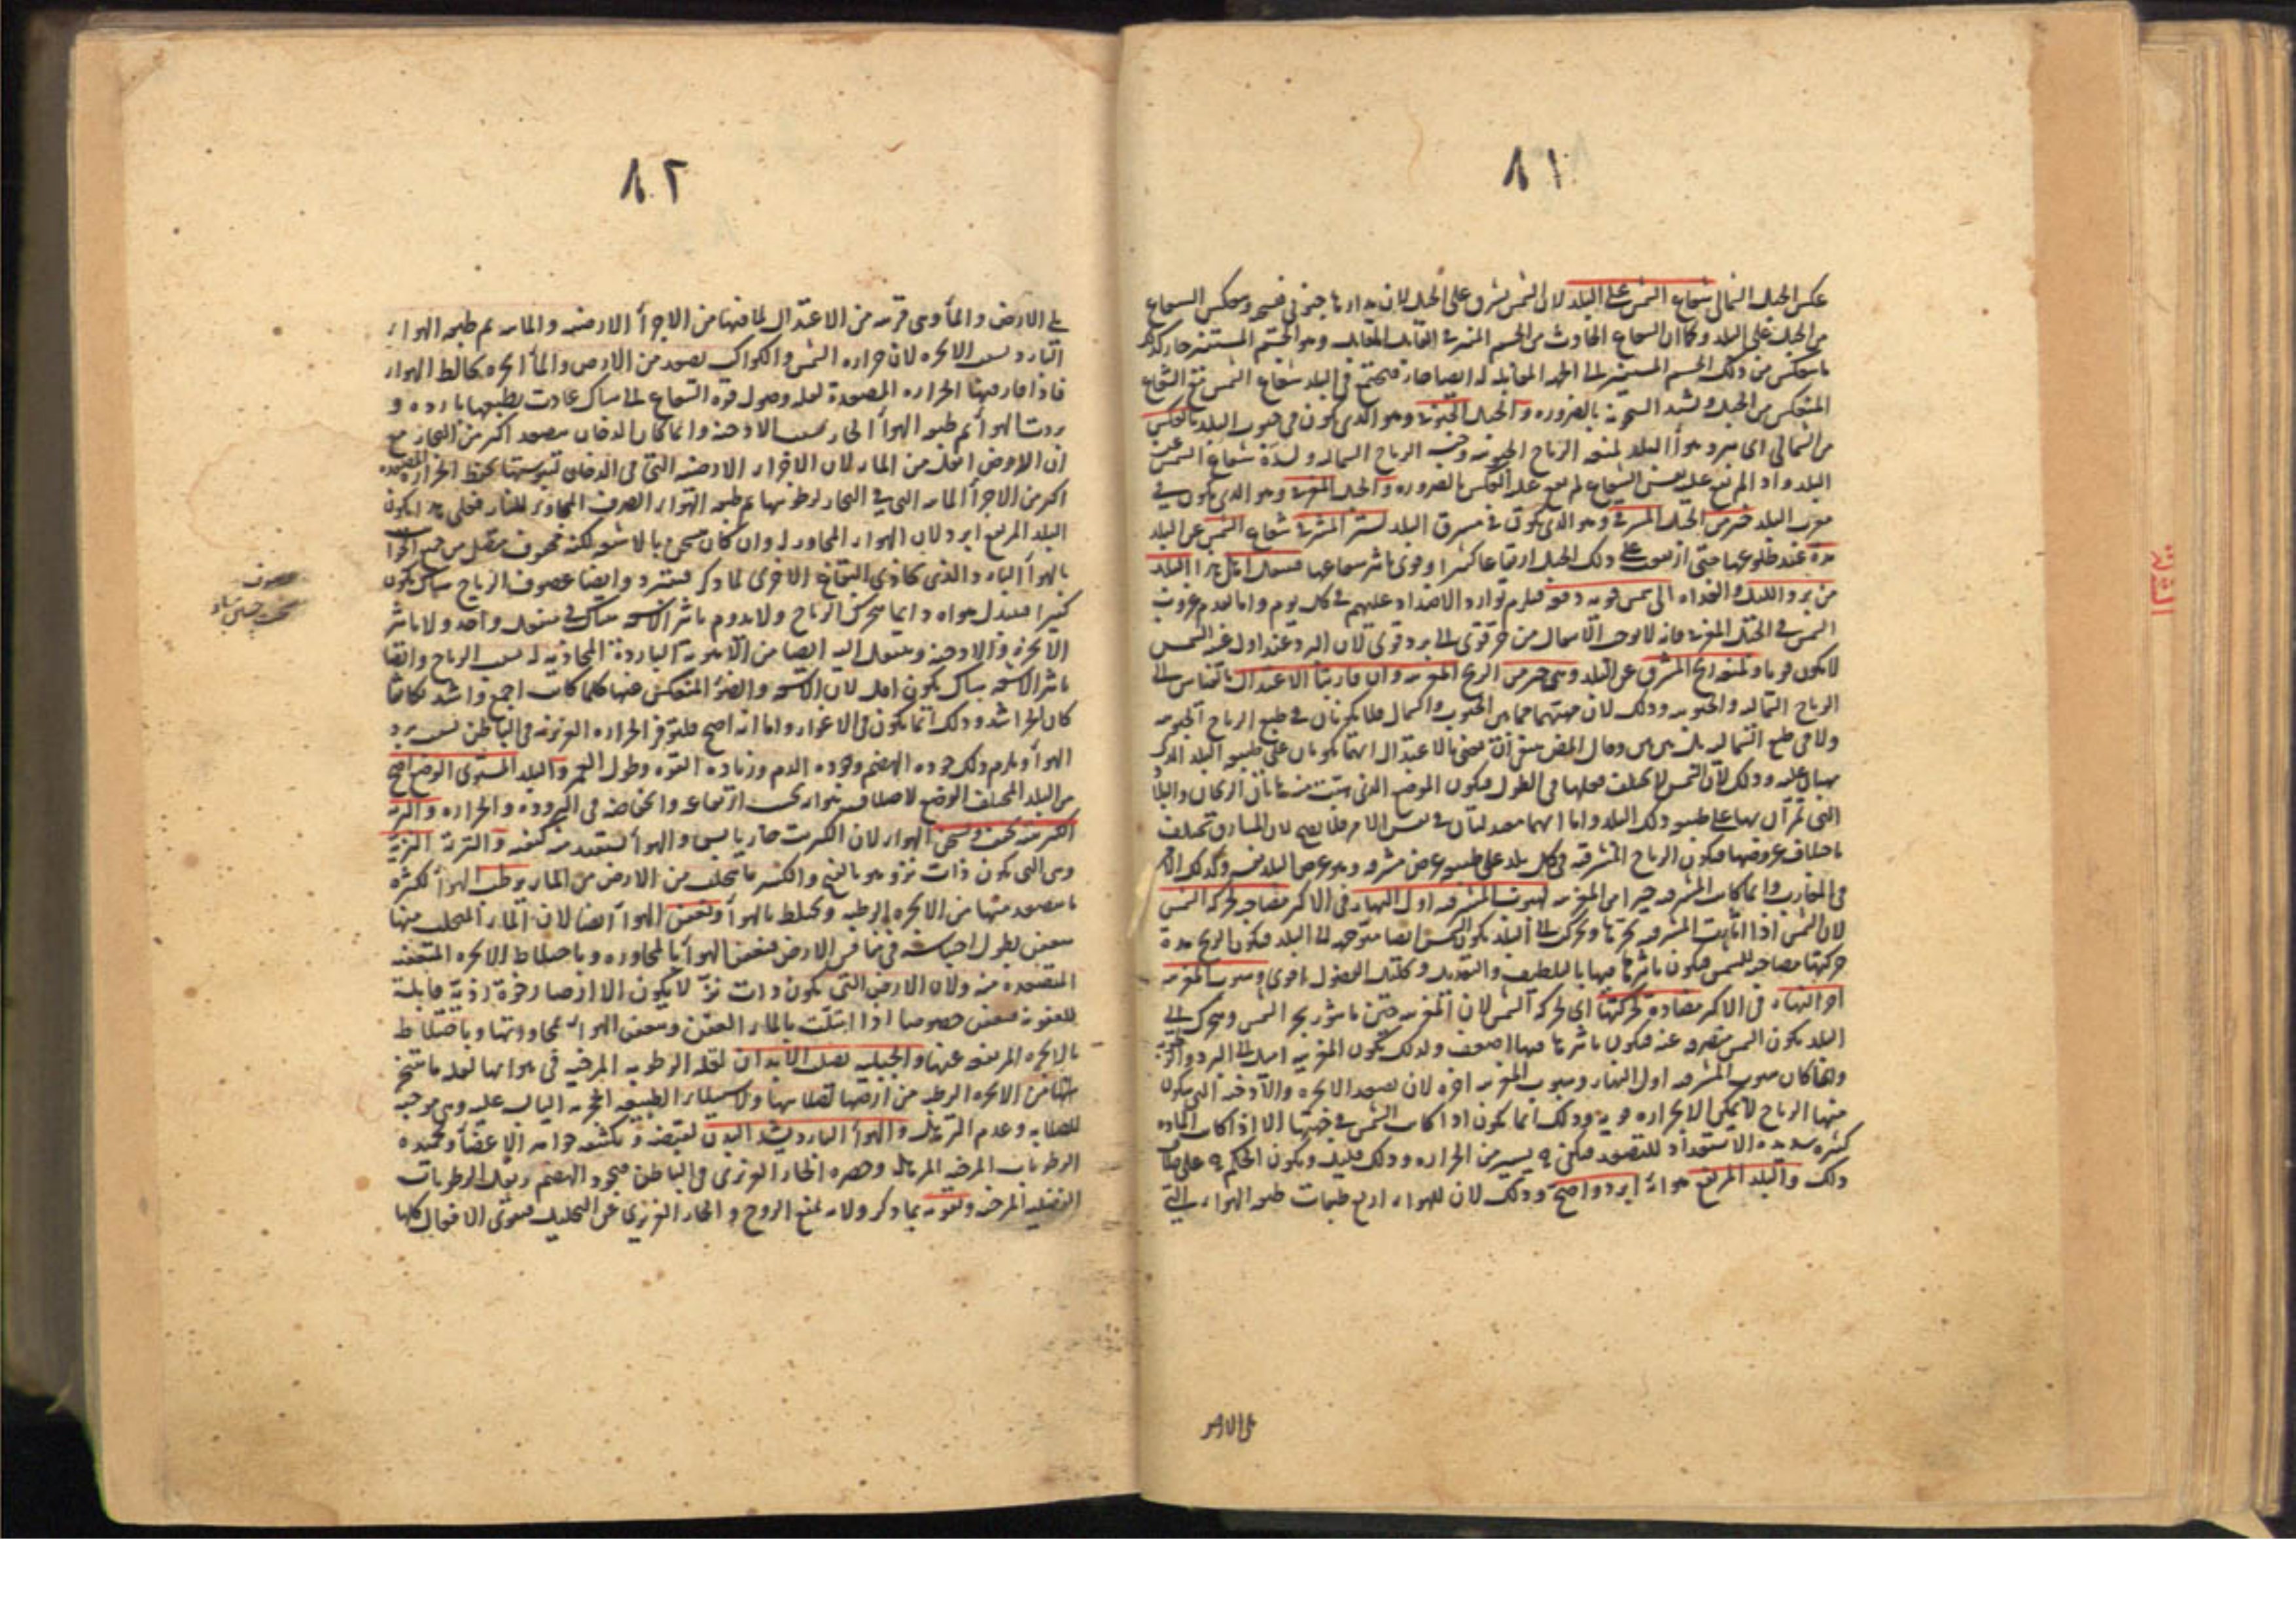 ٨١
عكس الجبل الشمالي شعاع الشمس على البلد لان الشمس تشرق على الجبل لان مدارها جنوبي فيسخن وينعكس الشعاع
من الجبل على البلد وكما ان الشعاع الحادث من الجسم المنير في المقابل وهو الجسم المستنير حار كذلك
ما ينعكس من ذلك الجسم المستنير الى الجهة المقابلة له ايضا حار فيجتمع في البلد شعاع الشمس مع الشعاع
المنعكس من الجبل ويشتد السخونة بالضرورة والجبل الجنوبي وهو الذي يكون في جنوب البلد بالعكس
من الشمالي اى يبرد هواء البلد لمنعه الرياح الجنوبية وحبسه الرياح الشمالية ولستره شعاع الشمس عن
البلد واذا لم يقع عليه الشعاع لم يقع عليه العكس بالضرورة والجبل المغربي وهو الذي يكون في
مغرب البلد خير من الجبل المشرقي وهو الذي يكون في مشرق البلد لستر المشرقي شعاع الشمس عن البلد
مدة عند طلوعها حتى اذا ارتفعت على ذلك الجبل ارتفاعا كثيرا وقوي تاثير شعاعها فينتقل اهل هذا البلد
من برد الليل والغداة الى شمس قوية دفعة فيلزم توارد الاضداد عليهم في كل يوم واما تقدم غروب
الشمس في الجبل المغربي فانه لا يوجب الانتقال من حر قوي الى برد قوي لان البرد عند اول غيبة الشمس
لا يكون قويا ولمنعه الريح المشرقي عن البلد وهي خير من الريح المغربية وان قاربتا الاعتدال بالقياس الى
الرياح الشمالية والجنوبية وذلك لان جهتيهما بين الجنوب والشمال فلا يكونان في طبع الرياح الجنوبية
ولا في طبع الشمالية بل بين بين وقال المصنف
يهبان عليه وذلك لان الشمس لا تختلف محلها في الطول فيكون الموضع الذي تهب منه هاتان الريحان والبلاد
التي تمران بها على طبيعة ذلك البلد واما انهما معتدلتان في نفس الامر فلا يصح لان المشارق تختلف
باختلاف عروضها فيكون الرياح المشرقية في كل بلد على طبيعة عرض مشرقه وهو عرض البلد نفسه وكذلك الامر
في المغارب وانما كانت المشرقية خيرا من المغربية لهبوب المشرقية اول النهار في الاكثر مصاحبة لحركة الشمس
لان الشمس اذا
حركتها مصاحبة للشمس فيكون تاثيرها فيها بالتلطيف والتعديل وتحليل الفضول اقوى وهبوب المغربية
اخر النهار في الاكثر مضادة لحركتها اى لحركة الشمس لان المغربية حين ما
البلد يكون الشمس منصرفة عنه فيكون تاثيرها فيها اضعف ولذلك يكون المغربية اميل الى البرد
وانما كان هبوب المشرقية اول النهار وهبوب المغربية اخره لان تصعد الابخرة والادخنة التي يكون
منها الرياح لا يمكن الا بحرارة قوية وذلك انما يكون اذا كانت الشمس في جهتها الا اذا كانت المادة
كثيرة شديدة الاستعداد للتصعد فيكفي فيه يسير من الحرارة وذلك قليل ويكون الحكم فيه على خلاف
ذلك والبلد المرتفع هواؤه ابرد واصح وذلك لان للهواء اربع طبقات طبقة الهواء التي
٨٢
يلي الارض والماء وهي قريبة من الاعتدال لما فيها من الاجزاء الارضية والمائية ثم طبقة الهواء
البارد بسبب الابخرة لان حرارة الشمس والكواكب تصعد من الارض والماء ابخرة يخالط الهواء
فاذا فارقتها الحرارة المصعدة لعدم وصول قوة الشعاع الى هناك عادت بطبعها باردة و
بردت الهواء ثم طبقة الهواء الحار بسبب الادخنة وانما كان الدخان يصعد اكثر من البخار مع
ان الارض اثقل من الماء لان الاجزاء الارضية التي في الدخان ليبوستها يحفظ الحرارة المصعدة
اكثر من الاجزاء المائية التي في البخار لرطوبتها ثم طبقة الهواء الصرف المجاور للنار فعلى هذا يكون
البلد المرتفع ابرد لان الهواء المجاور له وان كان يسخن بالاشعة لكنه محفوف من جميع
بالهواء البارد الذي يحاذي البقاع الاخرى لما ذكر فيتبرد وايضا عصوف الرياح هناك يكون
كثيرا فيتبدل هواؤه دائما بتحريك الرياح ولا يدوم تاثير الاشعة هناك في منفعل واحد ولا تاثير
الابخرة والادخنة وينتقل اليه ايضا من الاهوية الباردة المحاذية له بسبب الرياح وايضا
تاثير الاشعة هناك يكون اقل لان الاشعة والضوء المنعكس عنها كلما كانت اجمع واشد تكاثفا
كان الحر اشد وذلك انما يكون في الاغوار واما انه اصح فلتوفر الحرارة الغريزية في الباطن بسبب برد
الهواء ويلزم ذلك جودة الهضم وجودة الدم وزيادة القوة وطول العمر والبلد المستوي الوضع اصح
من البلد المختلف الوضع لاختلاف هوائه بحسب ارتفاعه وانخفاضه في البرودة والحرارة والتربة
الكبريتية يجفف ويسخن الهواء لان الكبريت حار يابس والهواء يستفيد منه كيفيته والتربة النزية
وهي التي يكون ذات نز وهو بالفتح والكسر ما يتحلب من الارض من الماء يرطب الهواء لكثرة
ما يصعد منها من الابخرة الرطبة ويختلط بالهواء ويعفن الهواء ايضا لان الماء المتحلب منها
يتعفن بطول احتباسه في منافس الارض فيعفن الهواء بالمجاورة وباختلاط الابخرة المتعفنة
المتصعدة منه ولان الارض التي يكون ذات نز لا يكون الا ارضا رخوة ردية قابلة
للعفونة فيتعفن خصوصا اذا ابتلت بالماء العفن ويتعفن الهواء بمجاورتها وباختلاط
الابخرة المرتفعة عنها والجبلية تصلب الابدان لقلة الرطوبة المرخية في هوائها لقلة ما يتبخر
اليها من الابخرة الرطبة من ارضها لصلابتها ولاستيلاء الطبيعة الحجرية اليابسة عليه وهي موجبة
للصلابة وعدم الترهل والهواء البارد يشد البدن لتقبضه وتكثيفه جواهر الاعضاء وتجميده
الرطوبات المرخية المرهلة وحصره الحار الغريزي في الباطن فيجود الهضم ويقل الرطوبات
الفضلية المرخية ويقويه بما ذكر ولانه يمنع الروح والحار الغريزي عن التحليل فيقوى الافعال كلها
يلي الارض